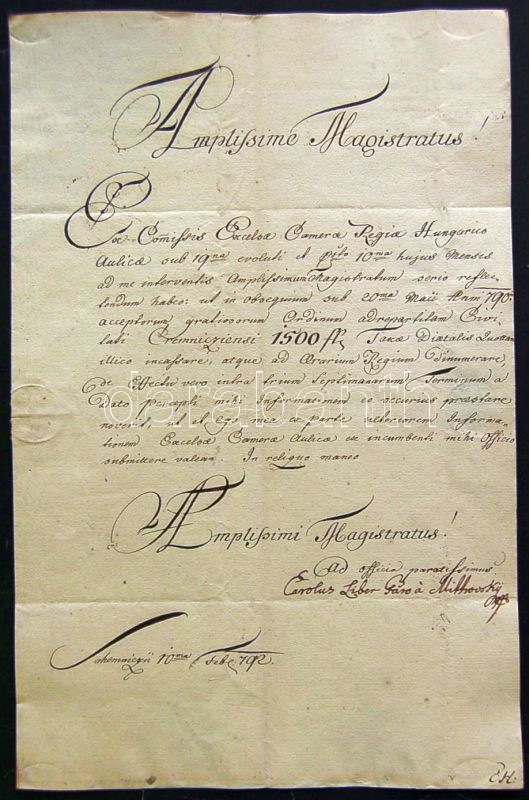 Amplissime Magistratus!
Ex Comissis Excelsæ Cameræ Regiæ Hungarico
Aulicæ sub 19na evoluti et 10ma hujus Mensis
ad me interventis Amplissimum Magistratum serio reflec-
tendum habeo: ut in obsequium sub 20ma Maii Anni 790.
acceptorum gratiosorum Ordinum adrepartitam Civi
tati Cremniczensi 1500 fl Taxæ Diætalis Quotam
illico incassare, atque ad Ærarium Regium dinumerare
de Effectu vero intra trium Septimanarum Terminum a
Dato percepti mihi Informationem eo occursus præstare
noverit, ut et Ego mea ex parte ulteriorem Informa-
tionem Excelsæ Cameræ Aulicæ ex incumbenti mihi Officio
submittere valeam. In reliquo maneo
Amplissimi Magistratus!
Ad officia paratissimus
Carolus Liber Baro à Mittrovsky
Schemniczii 10ma Feb. 792.
CH:
darabanth